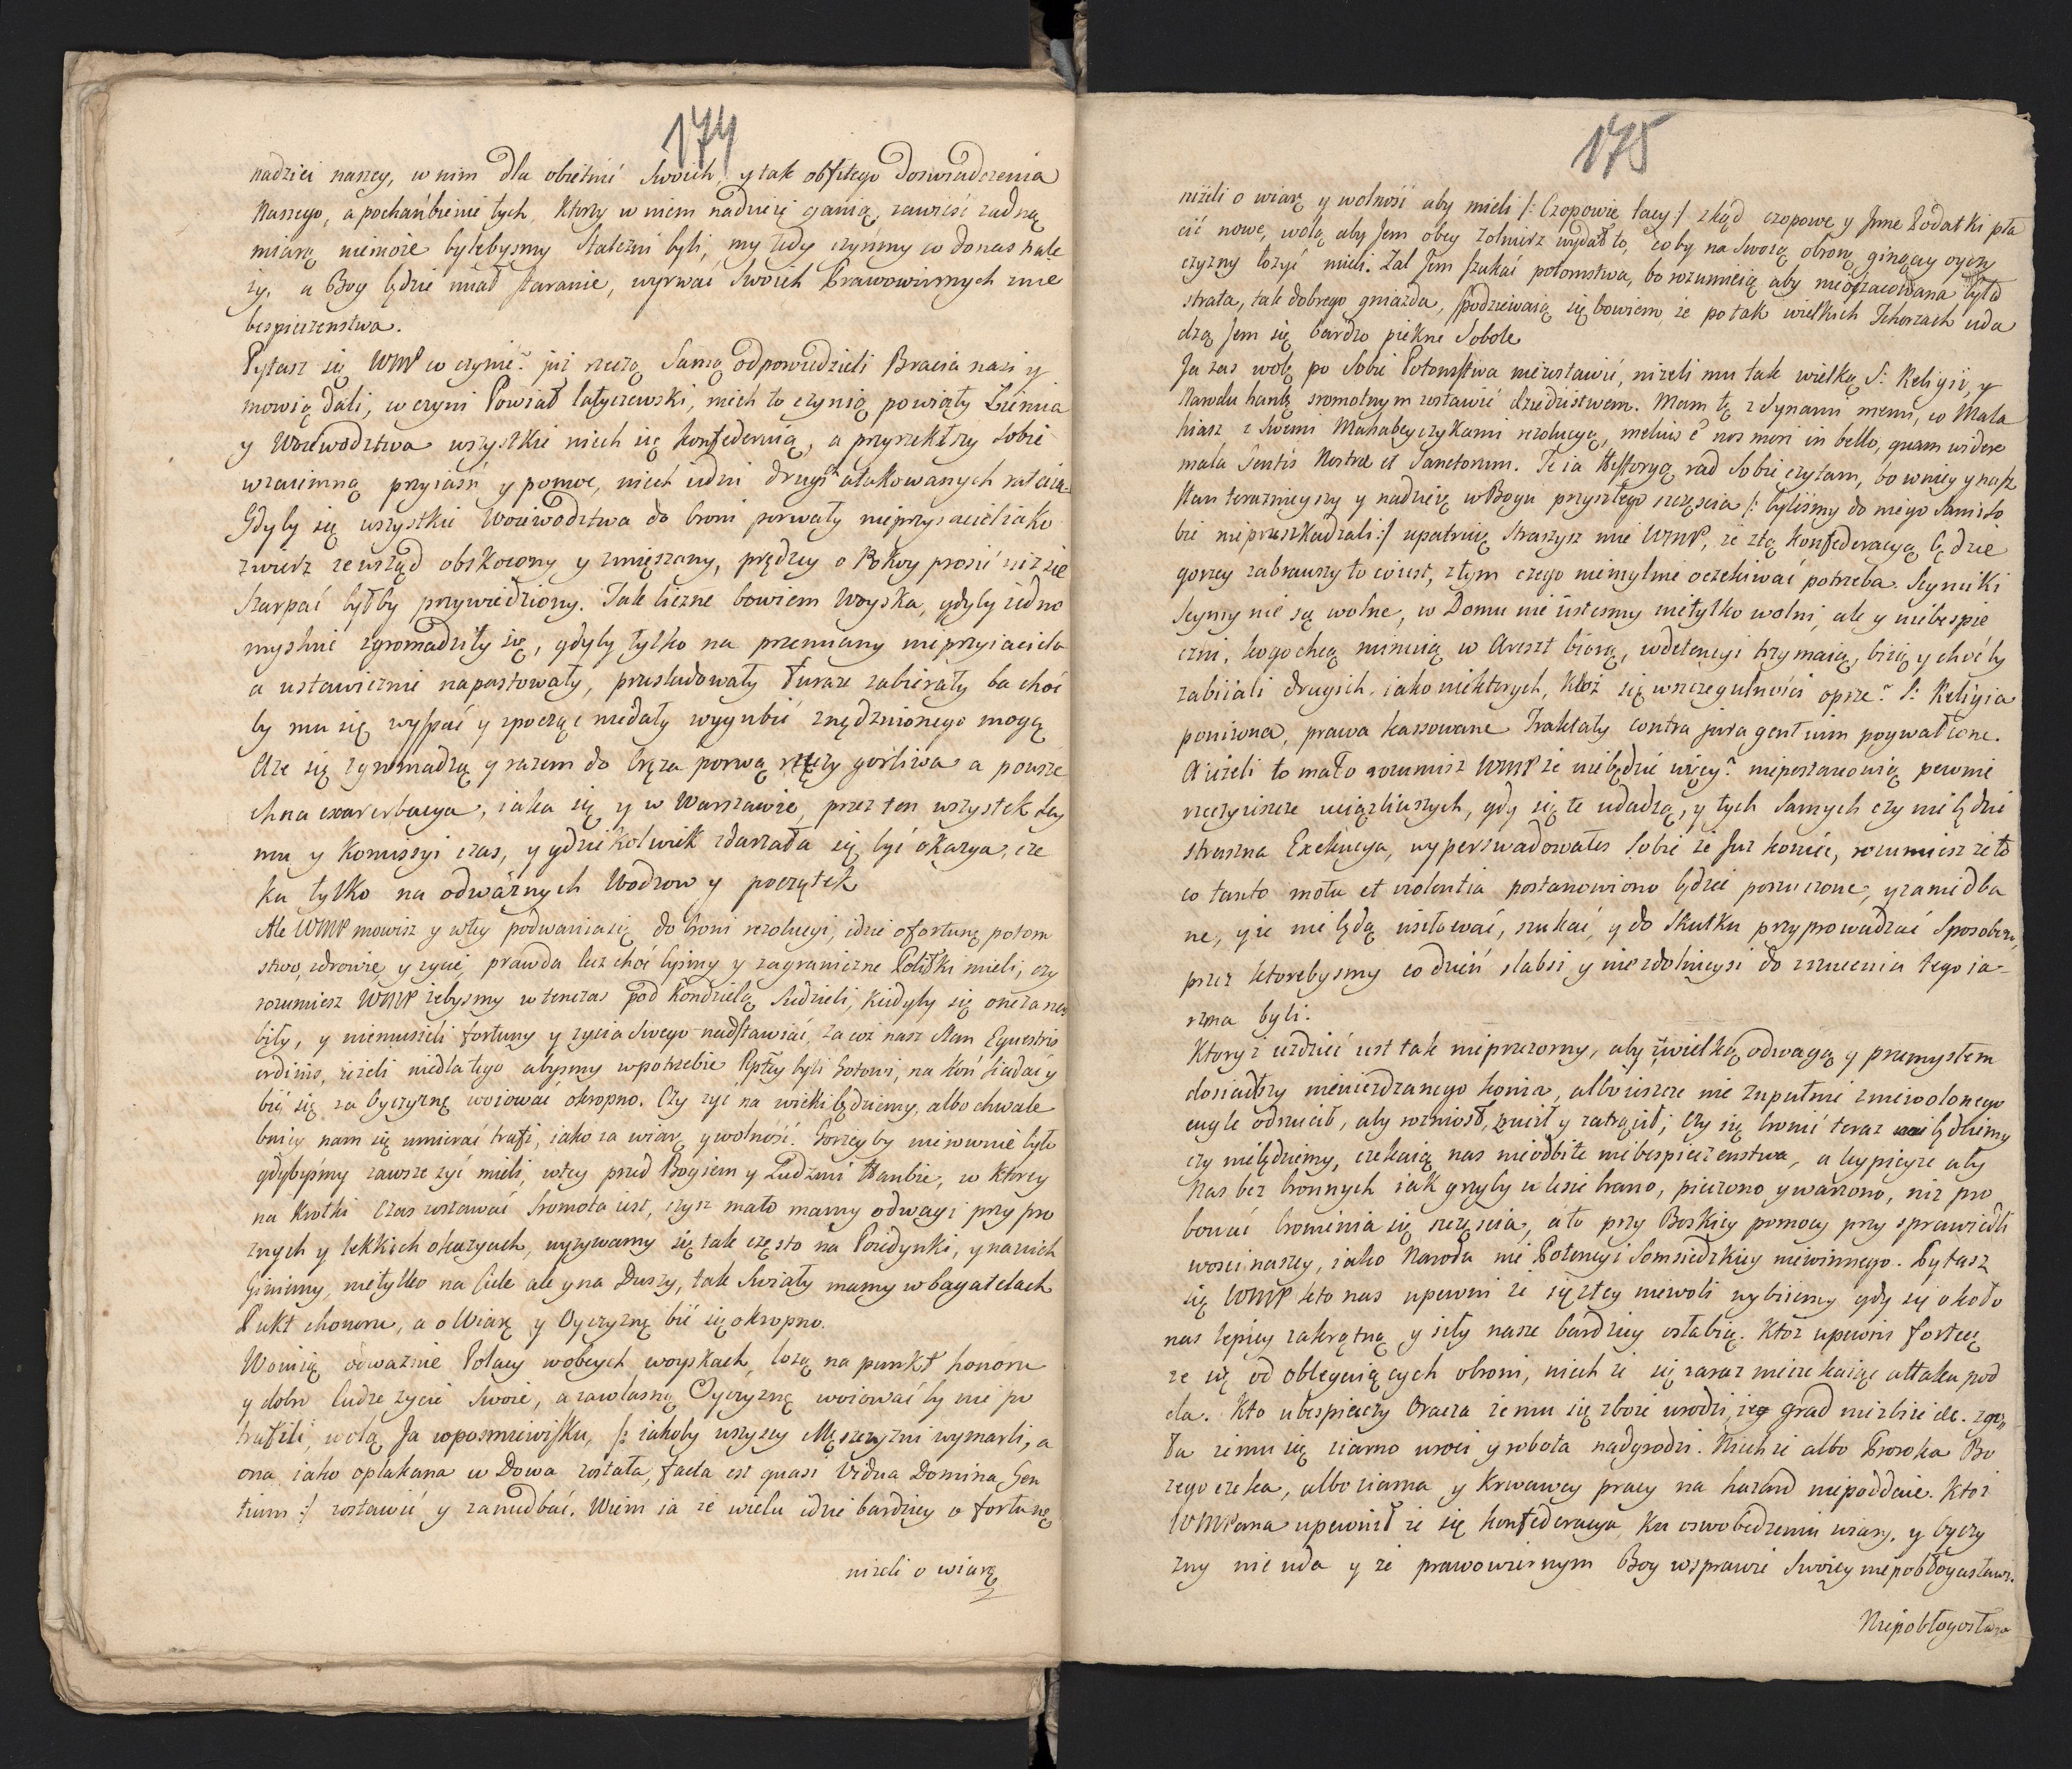 174
nadziei naszey, w nim dla obietnic swoich, y tak obfitego doswiadczenia
Naszego, a pochańbienie tych, ktorzy w niem nadzieię ganią, zawieść żadną
miarą niemoże bylebysmy stateczni byli, my tedy czyńmy co do nas nale
ży, a Bog będzie miał staranie, wyrwać swoich Prawowiernych z nie
bespieczenstwa.
Pytasz się WMP co czynić? już rzeczą samą odpowiedzieli Bracia nasi y
mowią dali, co czyni Powiat latyczewski, niech to czynią powiaty Ziemia
y Woiewodztwa wszystkie niech się konfederuią, a przyrzekłszy sobie
wzaiemną przyiaźń y pomoc, niech iedni drugich atakowanych ratuią.
Gdyby się wszystkie Woiewodztwa do broni porwały nieprzyiaciel iako
zwierz ze wsząd obskoczony y zmięszany, prędzey o Pokoy prosić niż się
szarpać byłby przywiedziony. Tak liczne bowiem Woyska, gdyby iedno
myslnie zgromadziły się, gdyby tylko na przemiany nieprzyiaciela
a ustawicznie napastowały, przesladowały furaze zabierały ba choć
by mu się wyspać y spocząc niedały wygubić znędznionego mogą
Aże się zgromadzą y razem do oręża porwą rzeczy gorliwa a powsze
chna exacerbacya, iaka się y w Warszawie, przez ten wszystek Sey
mu y Komissyi czas, y gdziekolwiek zdarzała się być okazya, cze
ka tylko na odważnych Wodzow y początek
Ale WMP mowisz y w tey podwania się do broni rezolucyi, idzie o fortunę potom
stwo, zdrowie y zycie, prawda lecz choć byśmy y zagraniczne Posiłki mieli, czy
rozumiesz WMP iebysmy w tenczas pod Kondzielą siedzieli, kiedyby się one za nas
biły, y niemusieli fortuny y zycia swego nadstawiać, za coż nasz stan Equestris
ordinis, ieżeli niedla tego abysmy w potrzebie Rptey byli Gotowi, na koń siadać y
bić się za oyczyznę woiować okropno. Czy żyć na wieki będziemy, albo chwale
bniey nam się umierać trafi, iako za wiarę y wolność. Gorzey by nierownie było
gdybyśmy zawsze żyć mieli, w tey przed Bogiem y Ludzmi Hanbie, w ktorey
na krotki czas zostawać sromota iest, czysz mało mamy odwagi przy pro
znych y lekkich okazyach, wyzywamy się tak często na Poiedynki, y na nich
Giniemy, nie tylko na Ciele ale y na Duszy, tak swiaty mamy w bagatelach
Pukt chonoru, a o Wiarę y Oyczyznę bić się okropno.
Woiuią odwaznie Polacy w obcych woyskach, łożą na punkt honoru
y dobro ludze zycie swoie, a za własną Oyczyznę woiować by nie po
trafili, wolą Ja w posmiewisku, /: iakoby wszyscy Męszczyzni wymarli, a
ona iako opłakana w Dowa została, facta est quasi Vidua Domina Gen
tium :/ zostawić y zaniedbać. Wiem ia że wielu idzie bardziey o fortunę
niżeli o wiarę
175
niżeli o wiarę y wolność aby mieli /: Czopowie łacy :/ zkąd czopowe y Jnne Podatki pła
cić nowe, wolą aby Jem obcy zołnierz wydarł to, coby na swoią obronę ginęcey oycz
czyzny łożyć mieli. Żal Jem szukać potomstwa, bo rozumieią aby nieoszacowana była
strata, tak dobrego gniazda, spodziewaią się bowiem że po tak wielkich Tchorzach uda
dzą Jem się bardzo piękne Sobole
Ja zas wolę po Sobie Potomstwa niezostawić, niżeli mu tak wielką S: Religii, y
Narodu hanbę sromotnym zostawić dziedzictwem. Mam tę z synami memi, co Mata
hiasz z swemi Machabeyczykami rezolucyą, melius e nos mori in bello, quam videre
mala Gentis Nostræ et Sanctorum. Te ia Historyą rad sobie czytam, bo w niey y nasz
stan terazniejszy y nadzieię w Bogu przyszłego szczęscia /: bylismy do niego sami so
bie nieprzeszkadzali :/ upatruię straszysz mie WMP, że ztą Konfederacyą będzie
gorzey zabrawszy to co iest, z tym czego niemylnie oczekiwać potrzeba. Seymiki
Seymy nie są wolne, w Domu nie iestesmy nietylko wolni, ale y niebespie
czni, kogo chcą mimuią w Areszt biorą, w detencyi trzymaią, biią y choć by
zabiiali drugich iako niektorych, ktoż się w szczegulności oprze? S: Religia
ponizona, prawa kassowane Traktaty contra jura gentium pogwałcone.
A ieżeli to mało rozumisz WMP że niebędzie więcy? niepostanowią pewnie
rzeczy ieszcze uciążliwszych, gdy się te udadzą, y tych samych czy nie będzie
straszna Exekucya, wyperswadowałes sobie że Już koniec, rozumiesz że to
co tanto motu et violentia postanowiono będzie porzucone, y zaniedba
ne, y że nie będą usiłować, szukać, y do skutku przyprowadzać sposobow,
przez ktorebysmy co dzień słabsi y niezdolnieysi do zrzucenia tego ia-
rzma byli.
Ktoryż iezdziec iest tak nieprzezorny, aby z wielką odwagą y przemysłem
dosiadłszy nieuiezdzanego konia, albo ieszcze nie zupełnie zniewolonego
cugle odrzucił, aby rozniosł, zniosł y zatrącił; Czy się bronić teraz będziemy
czy niebędziemy, czekaią nas nieodbite niebespieczenstwa, a lepieyże aby
Nas bez bronnych iak grzyby w lesie brano, pieczono y warzono, niż pro
bować bronienia się szczęscia, a to przy Boskiey pomocy przy sprawiedli
wosci naszey, iako Narodu nie Potencyi Somsiedzkiey niewinnego. Pytasz
się WMP kto nas upewni że się z tey niewoli wybiiemy gdy się około
nas lepiey zakrątną y siły nasze bardziey osłabią. Ktoż upewni fortecę
że się od oblegaiących obroni, niech że się zaraz nieczekaiąc attaku pod
da. Kto ubespieczy Oracza że mu się zboże urodzi, że grad niezbiie etc. zgoń
ta że mu się ziarno wroci y robota nadgrodzi. Niech że albo Proroka Bo
zego czeka, albo ziarna y Krwawey pracy na hazard niepoddaie. Ktoż
WMPana upewnił że się Konfederacya, ku oswobodzeniu wiary, y oyczy
zny nieuda y że prawowiernym Bog w sprawie swoiey niepobłogosławi.
Niepobłogosława